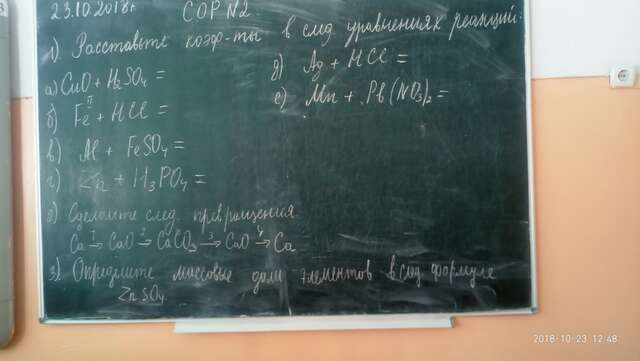 23.10.2018г СОР №2
1) Расставьте коэф-ты в след. уравнениях реакций:
а) CuO + H2SO4 =
б) Fe + HCl =
II
в) Al + FeSO4 =
г) Zn + H3PO4 =
д) Ag + HCl =
е) Mn + Pb(NO3)2 =
2) Сделайте след. превращения
Ca 1→ CaO 2→ CaCO3 3→ CaO 4→ Ca
3) Определите массовые доли элементов в след. формуле
ZnSO4
2018-10-23 12:48